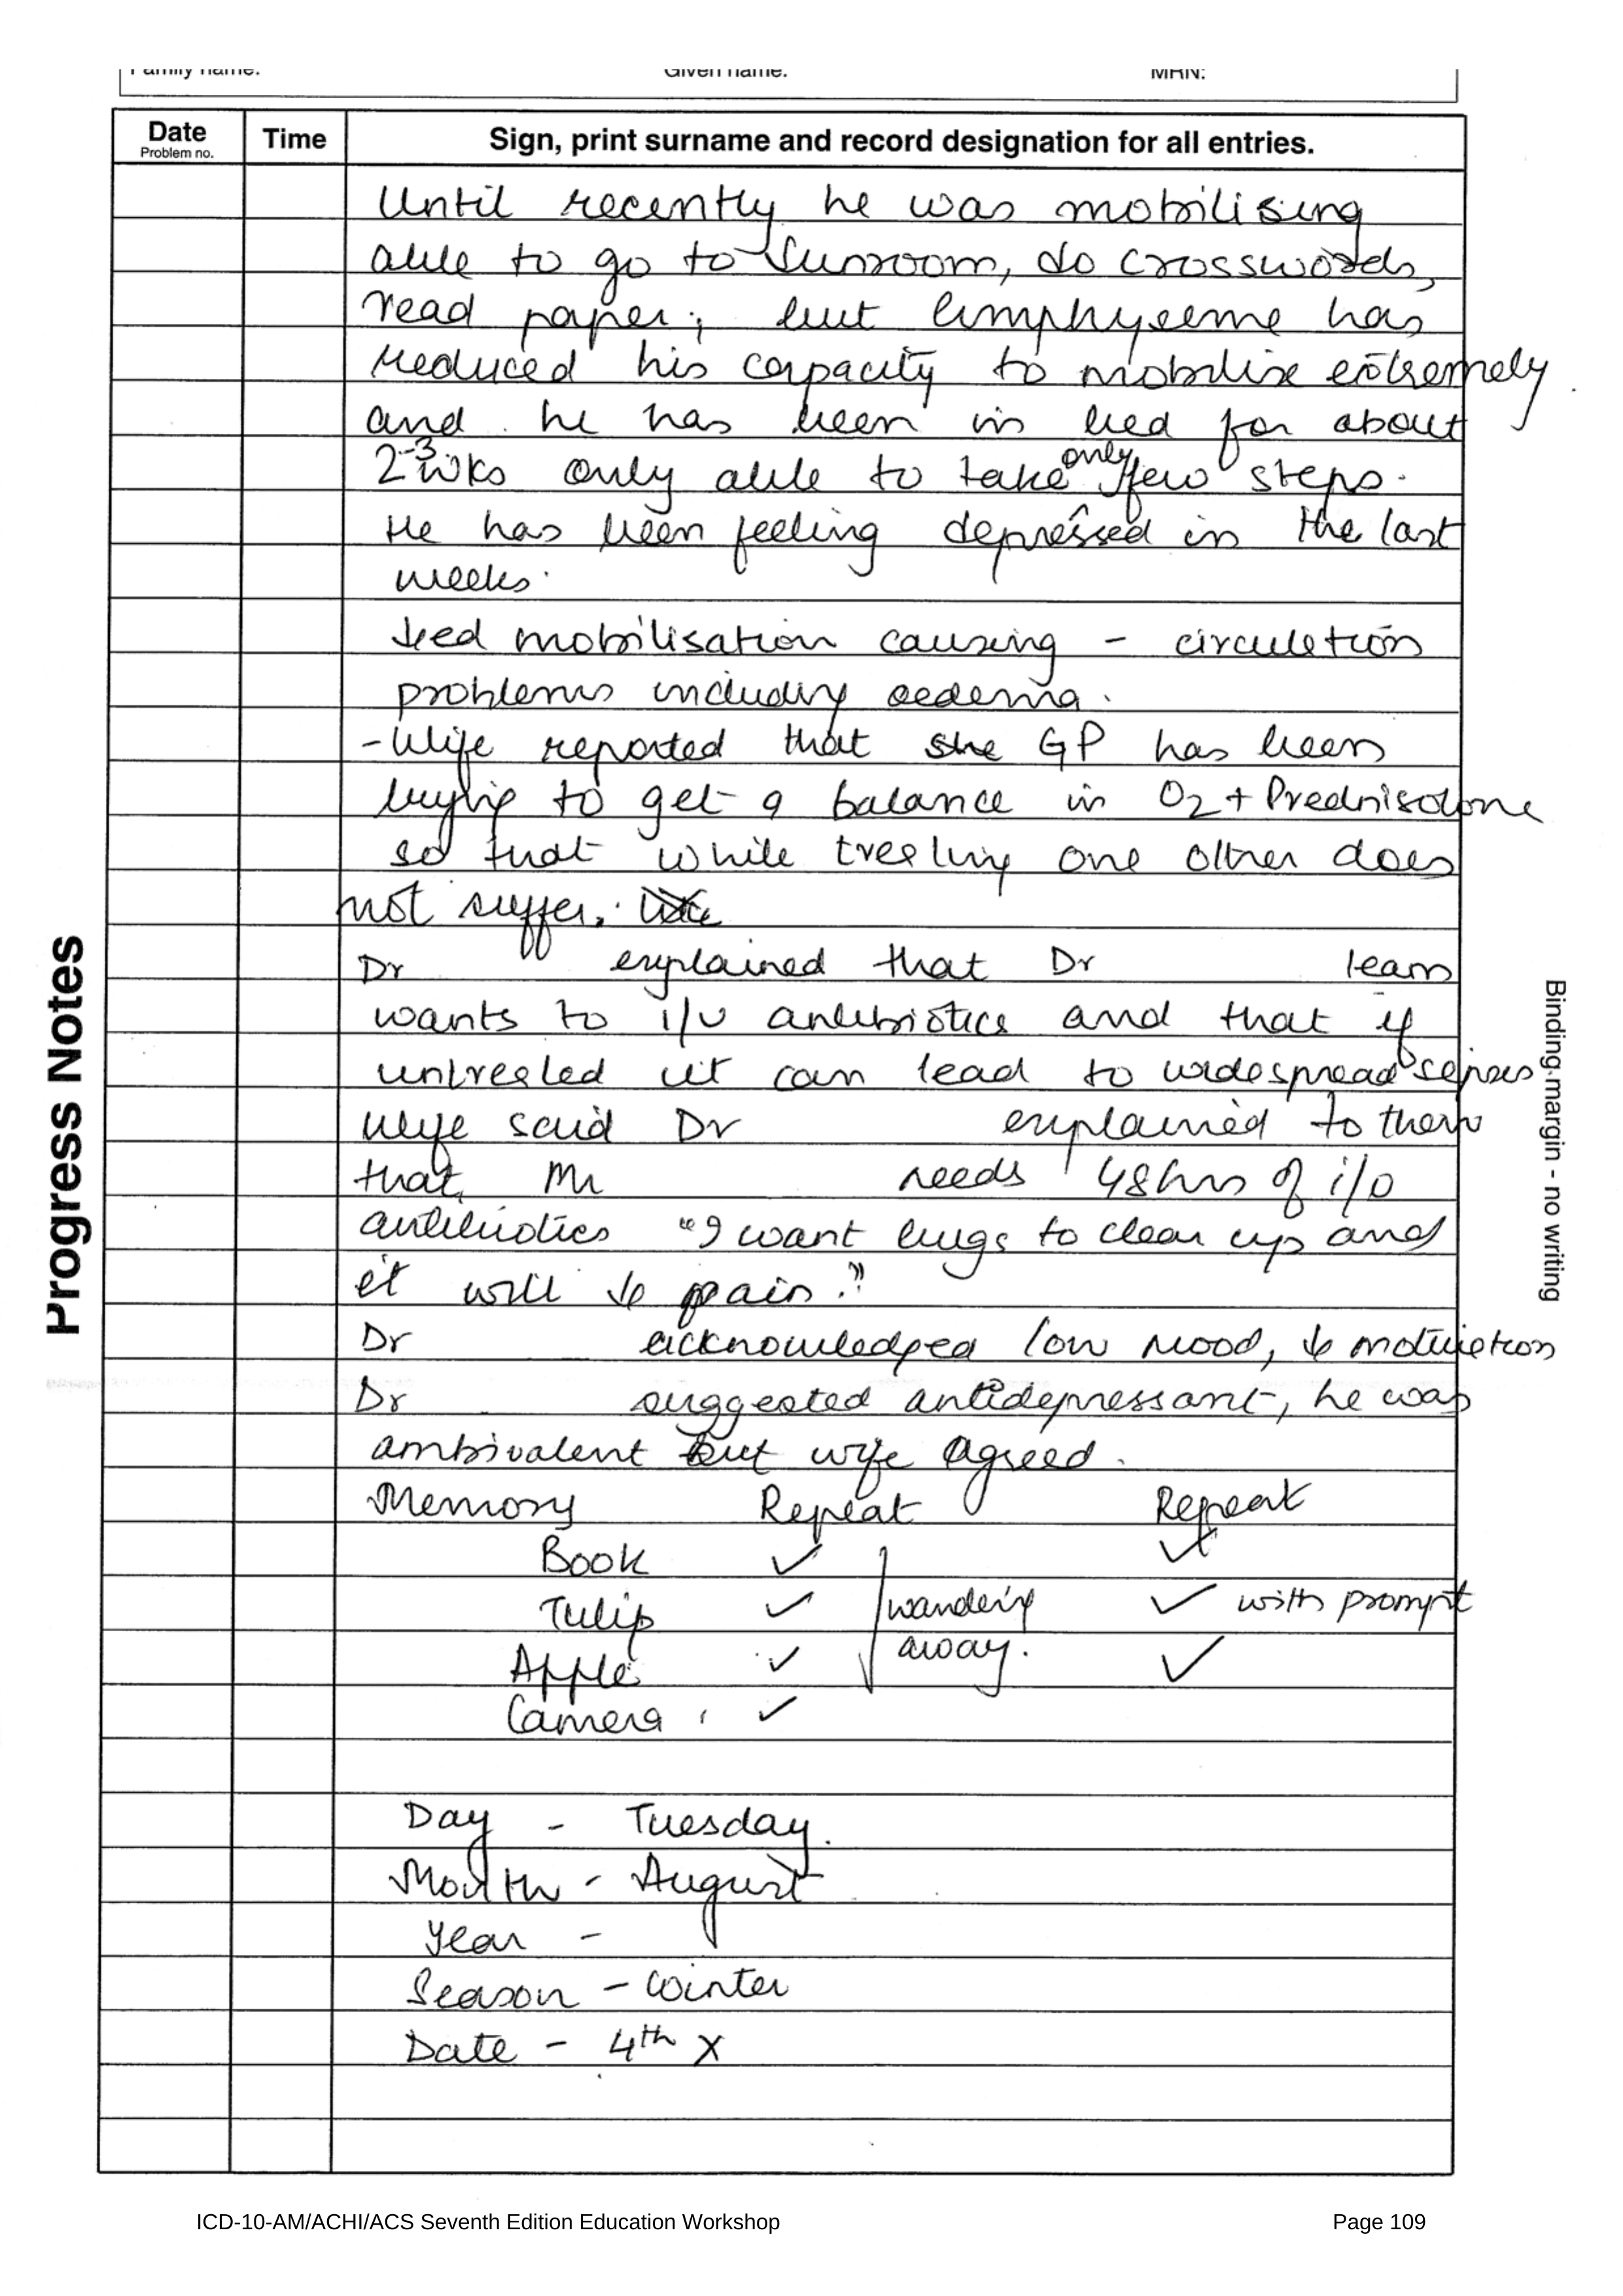 Family name: Given name: MRN:
Date Time Sign, print surname and record designation for all entries.
Problem no.
Until recently he was mobilising
able to go to Sunroom, do crosswords,
read paper; but emphyseme has
reduced his capacity to mobilise extremely
and he has been in bed for about
2-3 wks only able to take only few steps.
He has been feeling depressed in the last
weeks.
mobilisation causing - circulation
problems including oedema.
- Wife reported that she GP has been
trying to get a balance in O2 + Prednisolone
so that while treating one other does
not suffer.
Dr explained that Dr team
wants to i/v antibiotics and that if
untreated it can lead to widespread sepsis
Wife said Dr explained to them
that Mr needs 48hrs of i/v
antibiotics "I want bugs to clear up and
it will ↓ pain."
Dr acknowledged low mood, ↓ motivation
Dr suggested antidepressant, he was
ambivalent but wife agreed.
Memory Repeat Repeat
Book ✓ ✓
Tulip ✓ wandering ✓ with prompt
Apple ✓ away. ✓
Camera ✓
Day - Tuesday.
Month - August
Year -
Season - Winter
Date - 4th X
Progress Notes
Binding margin - no writing
ICD-10-AM/ACHI/ACS Seventh Edition Education Workshop Page 109